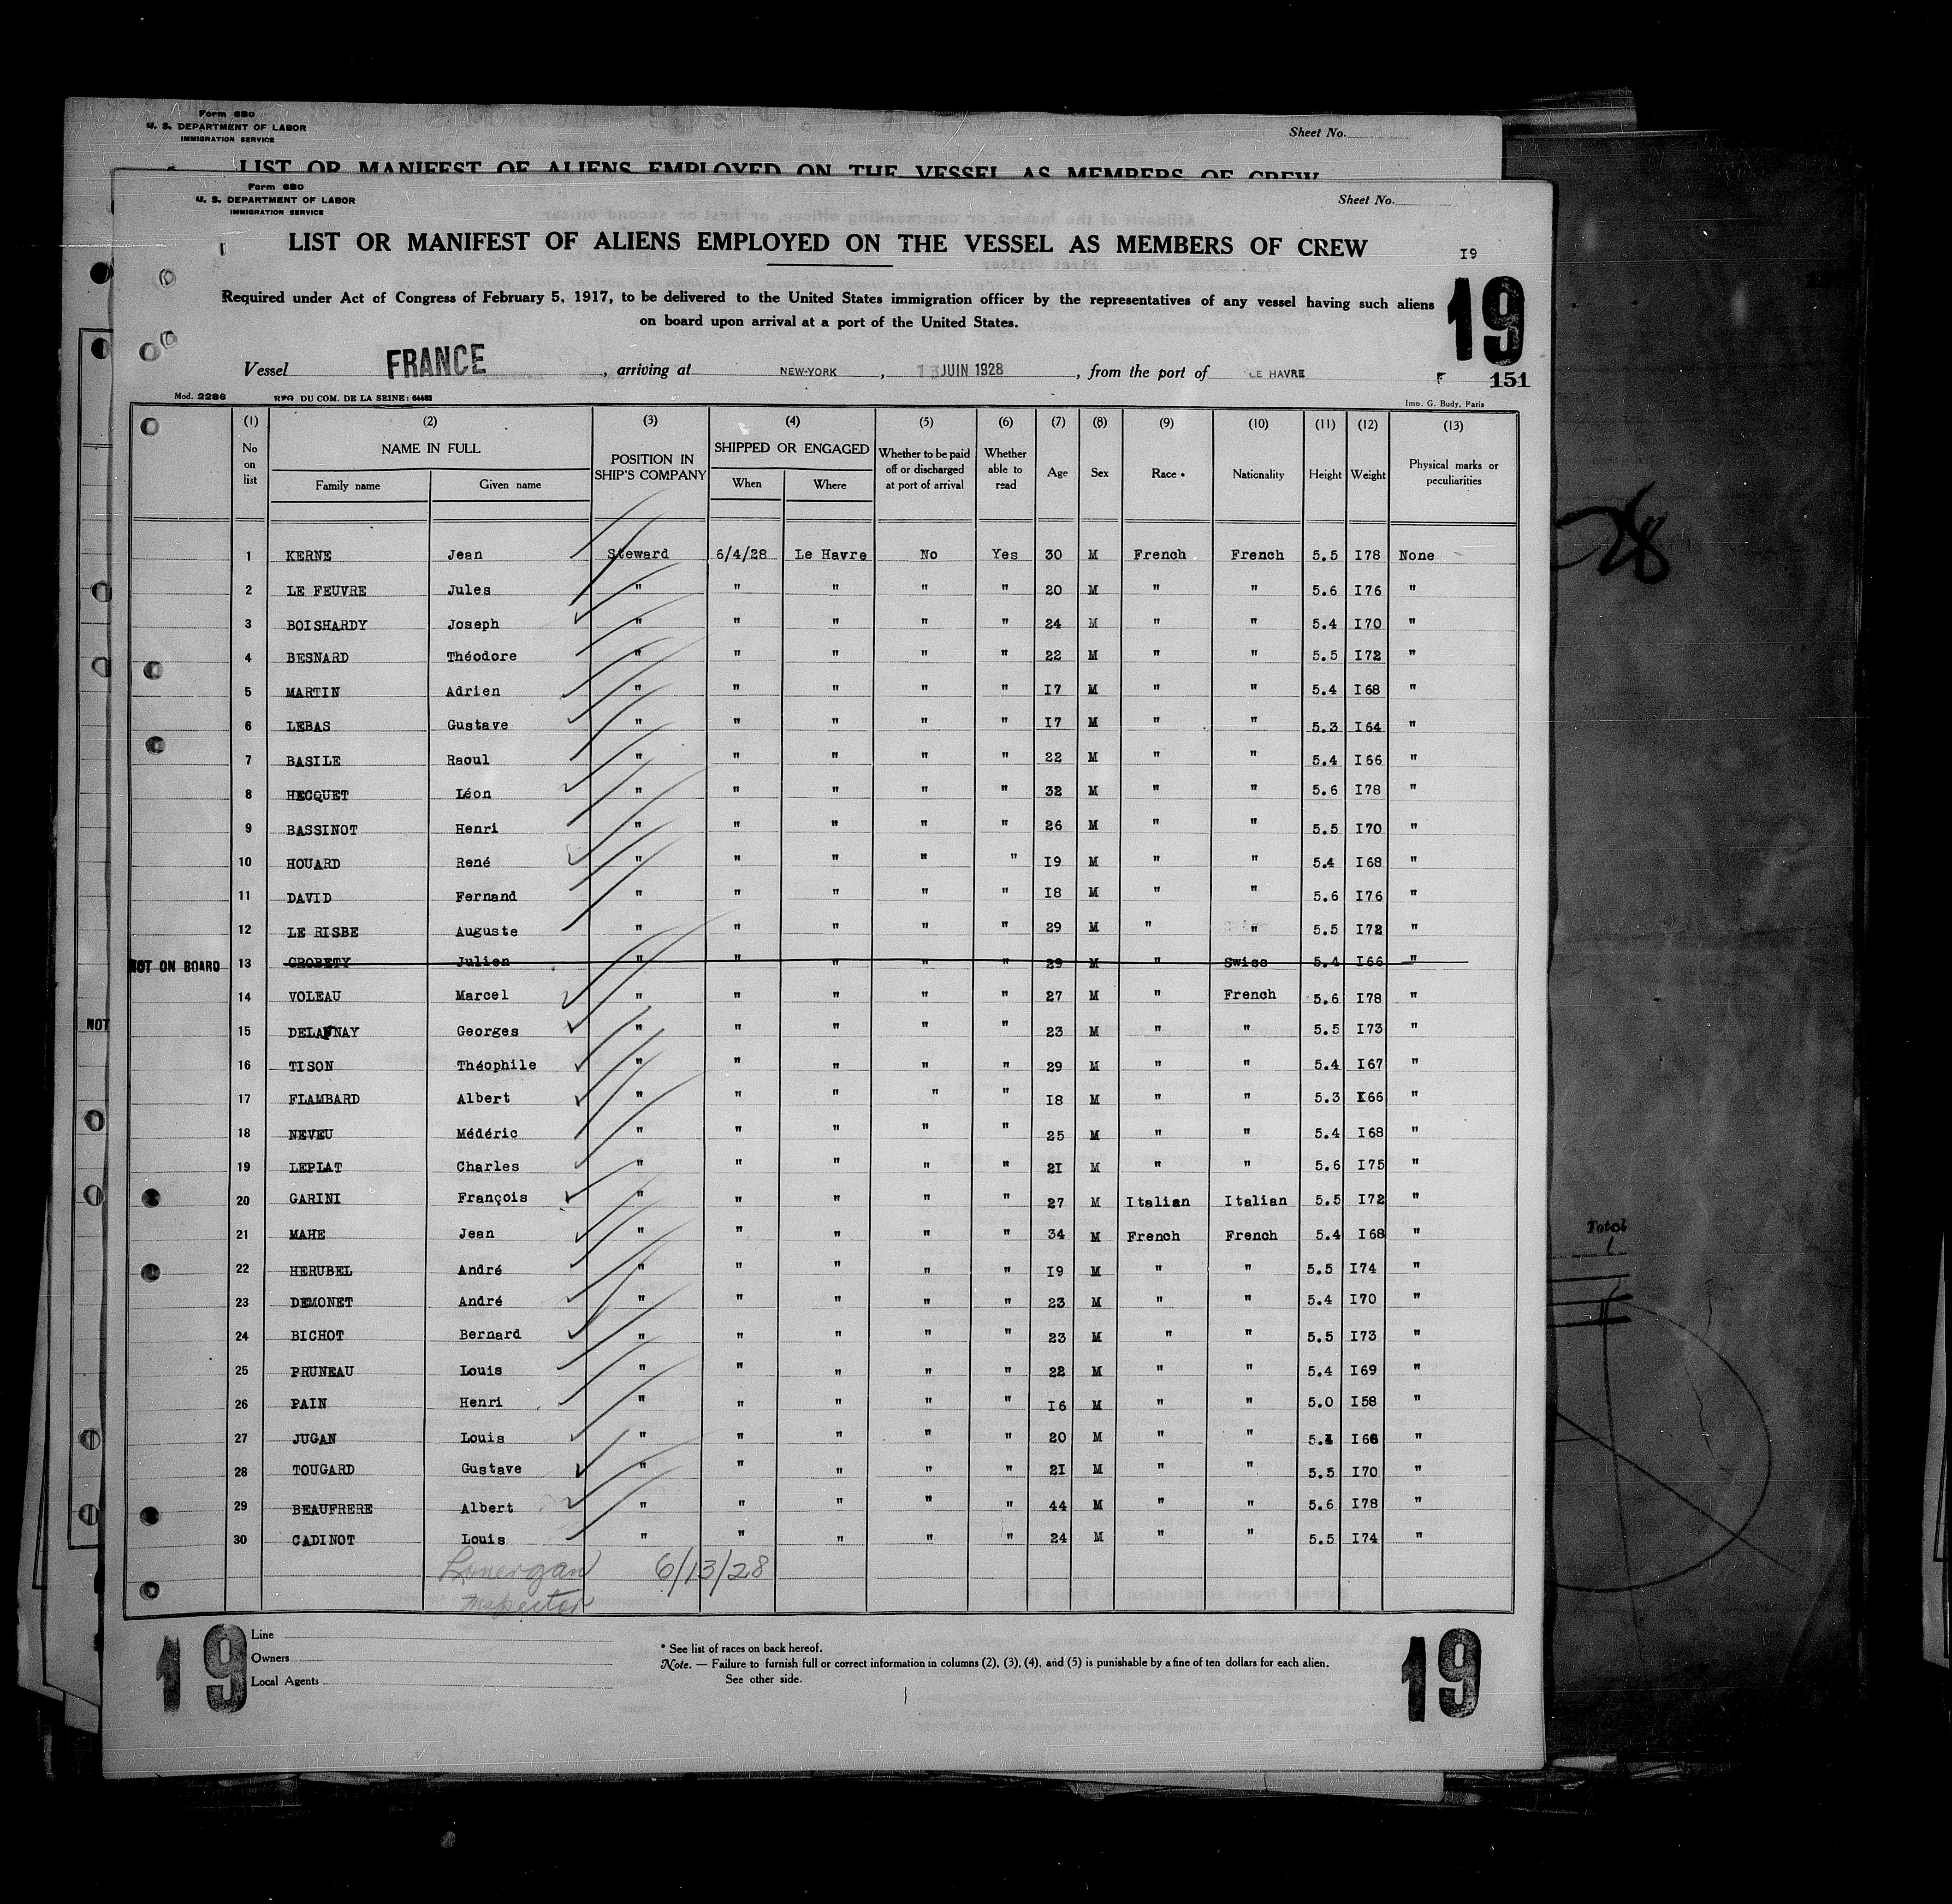 Form 680
U. S. DEPARTMENT OF LABOR
IMMIGRATION SERVICE
Sheet No.
LIST OR MANIFEST OF ALIENS EMPLOYED ON THE VESSEL AS MEMBERS OF CREW
Form 680
U. S. DEPARTMENT OF LABOR
IMMIGRATION SERVICE
Sheet No.
LIST OR MANIFEST OF ALIENS EMPLOYED ON THE VESSEL AS MEMBERS OF CREW
I9
19
Required under Act of Congress of February 5, 1917, to be delivered to the United States immigration officer by the representatives of any vessel having such aliens
on board upon arrival at a port of the United States.
Vessel FRANCE, arriving at NEW-YORK, 13 JUIN 1928, from the port of LE HAVRE
F 151
Mod. 2286 REG. DU COM. DE LA SEINE: 64483 Imp. G. Budy, Paris
(1) (2) (3) (4) (5) (6) (7) (8) (9) (10) (11) (12) (13)
No on list NAME IN FULL Family name Given name POSITION IN SHIP'S COMPANY SHIPPED OR ENGAGED When Where Whether to be paid off or discharged at port of arrival Whether able to read Age Sex Race * Nationality Height Weight Physical marks or peculiarities
1 KERNE Jean Steward 6/4/28 Le Havre No Yes 30 M French French 5.5 I78 None
2 LE FEUVRE Jules " " " " " 20 M " " 5.6 I76 "
3 BOISHARDY Joseph " " " " " 24 M " " 5.4 I70 "
4 BESNARD Théodore " " " " " 22 M " " 5.5 I72 "
5 MARTIN Adrien " " " " " I7 M " " 5.4 I68 "
6 LEBAS Gustave " " " " " I7 M " " 5.3 I64 "
7 BASILE Raoul " " " " " 22 M " " 5.4 I66 "
8 HECQUET Léon " " " " " 32 M " " 5.6 I78 "
9 BASSINOT Henri " " " " " 26 M " " 5.5 I70 "
10 HOUARD René " " " " " I9 M " " 5.4 I68 "
11 DAVID Fernand " " " " " I8 M " " 5.6 I76 "
12 LE RISBE Auguste " " " " " 29 M " " 5.5 I72 "
NOT ON BOARD 13 GROBETY Julien " " " " " 29 M " Swiss 5.4 I66 "
14 VOLEAU Marcel " " " " " 27 M " French 5.6 I78 "
NOT
15 DELAUNAY Georges " " " " " 23 M " " 5.5 I73 "
16 TISON Théophile " " " " " 29 M " " 5.4 I67 "
17 FLAMBARD Albert " " " " " I8 M " " 5.3 I66 "
18 NEVEU Médéric " " " " " 25 M " " 5.4 I68 "
19 LEPLAT Charles " " " " " 2I M " " 5.6 I75 "
20 GARINI François " " " " " 27 M Italian Italian 5.5 I72 "
21 MAHE Jean " " " " " 34 M French French 5.4 I68 "
22 HERUBEL André " " " " " I9 M " " 5.5 I74 "
23 DEMONET André " " " " " 23 M " " 5.4 I70 "
24 BICHOT Bernard " " " " " 23 M " " 5.5 I73 "
25 PRUNEAU Louis " " " " " 22 M " " 5.4 I69 "
26 PAIN Henri " " " " " I6 M " " 5.0 I58 "
27 JUGAN Louis " " " " " 20 M " " I66 "
28 TOUGARD Gustave " " " " " 2I M " " 5.5 I70 "
29 BEAUFRERE Albert " " " " " 44 M " " 5.6 I78 "
30 CADINOT Louis " " " " " 24 M " " 5.5 I74 "
Lonergan 6/13/28
Inspector
Total
19
Line
Owners
Local Agents
* See list of races on back hereof.
Note. — Failure to furnish full or correct information in columns (2), (3), (4), and (5) is punishable by a fine of ten dollars for each alien.
See other side.
19